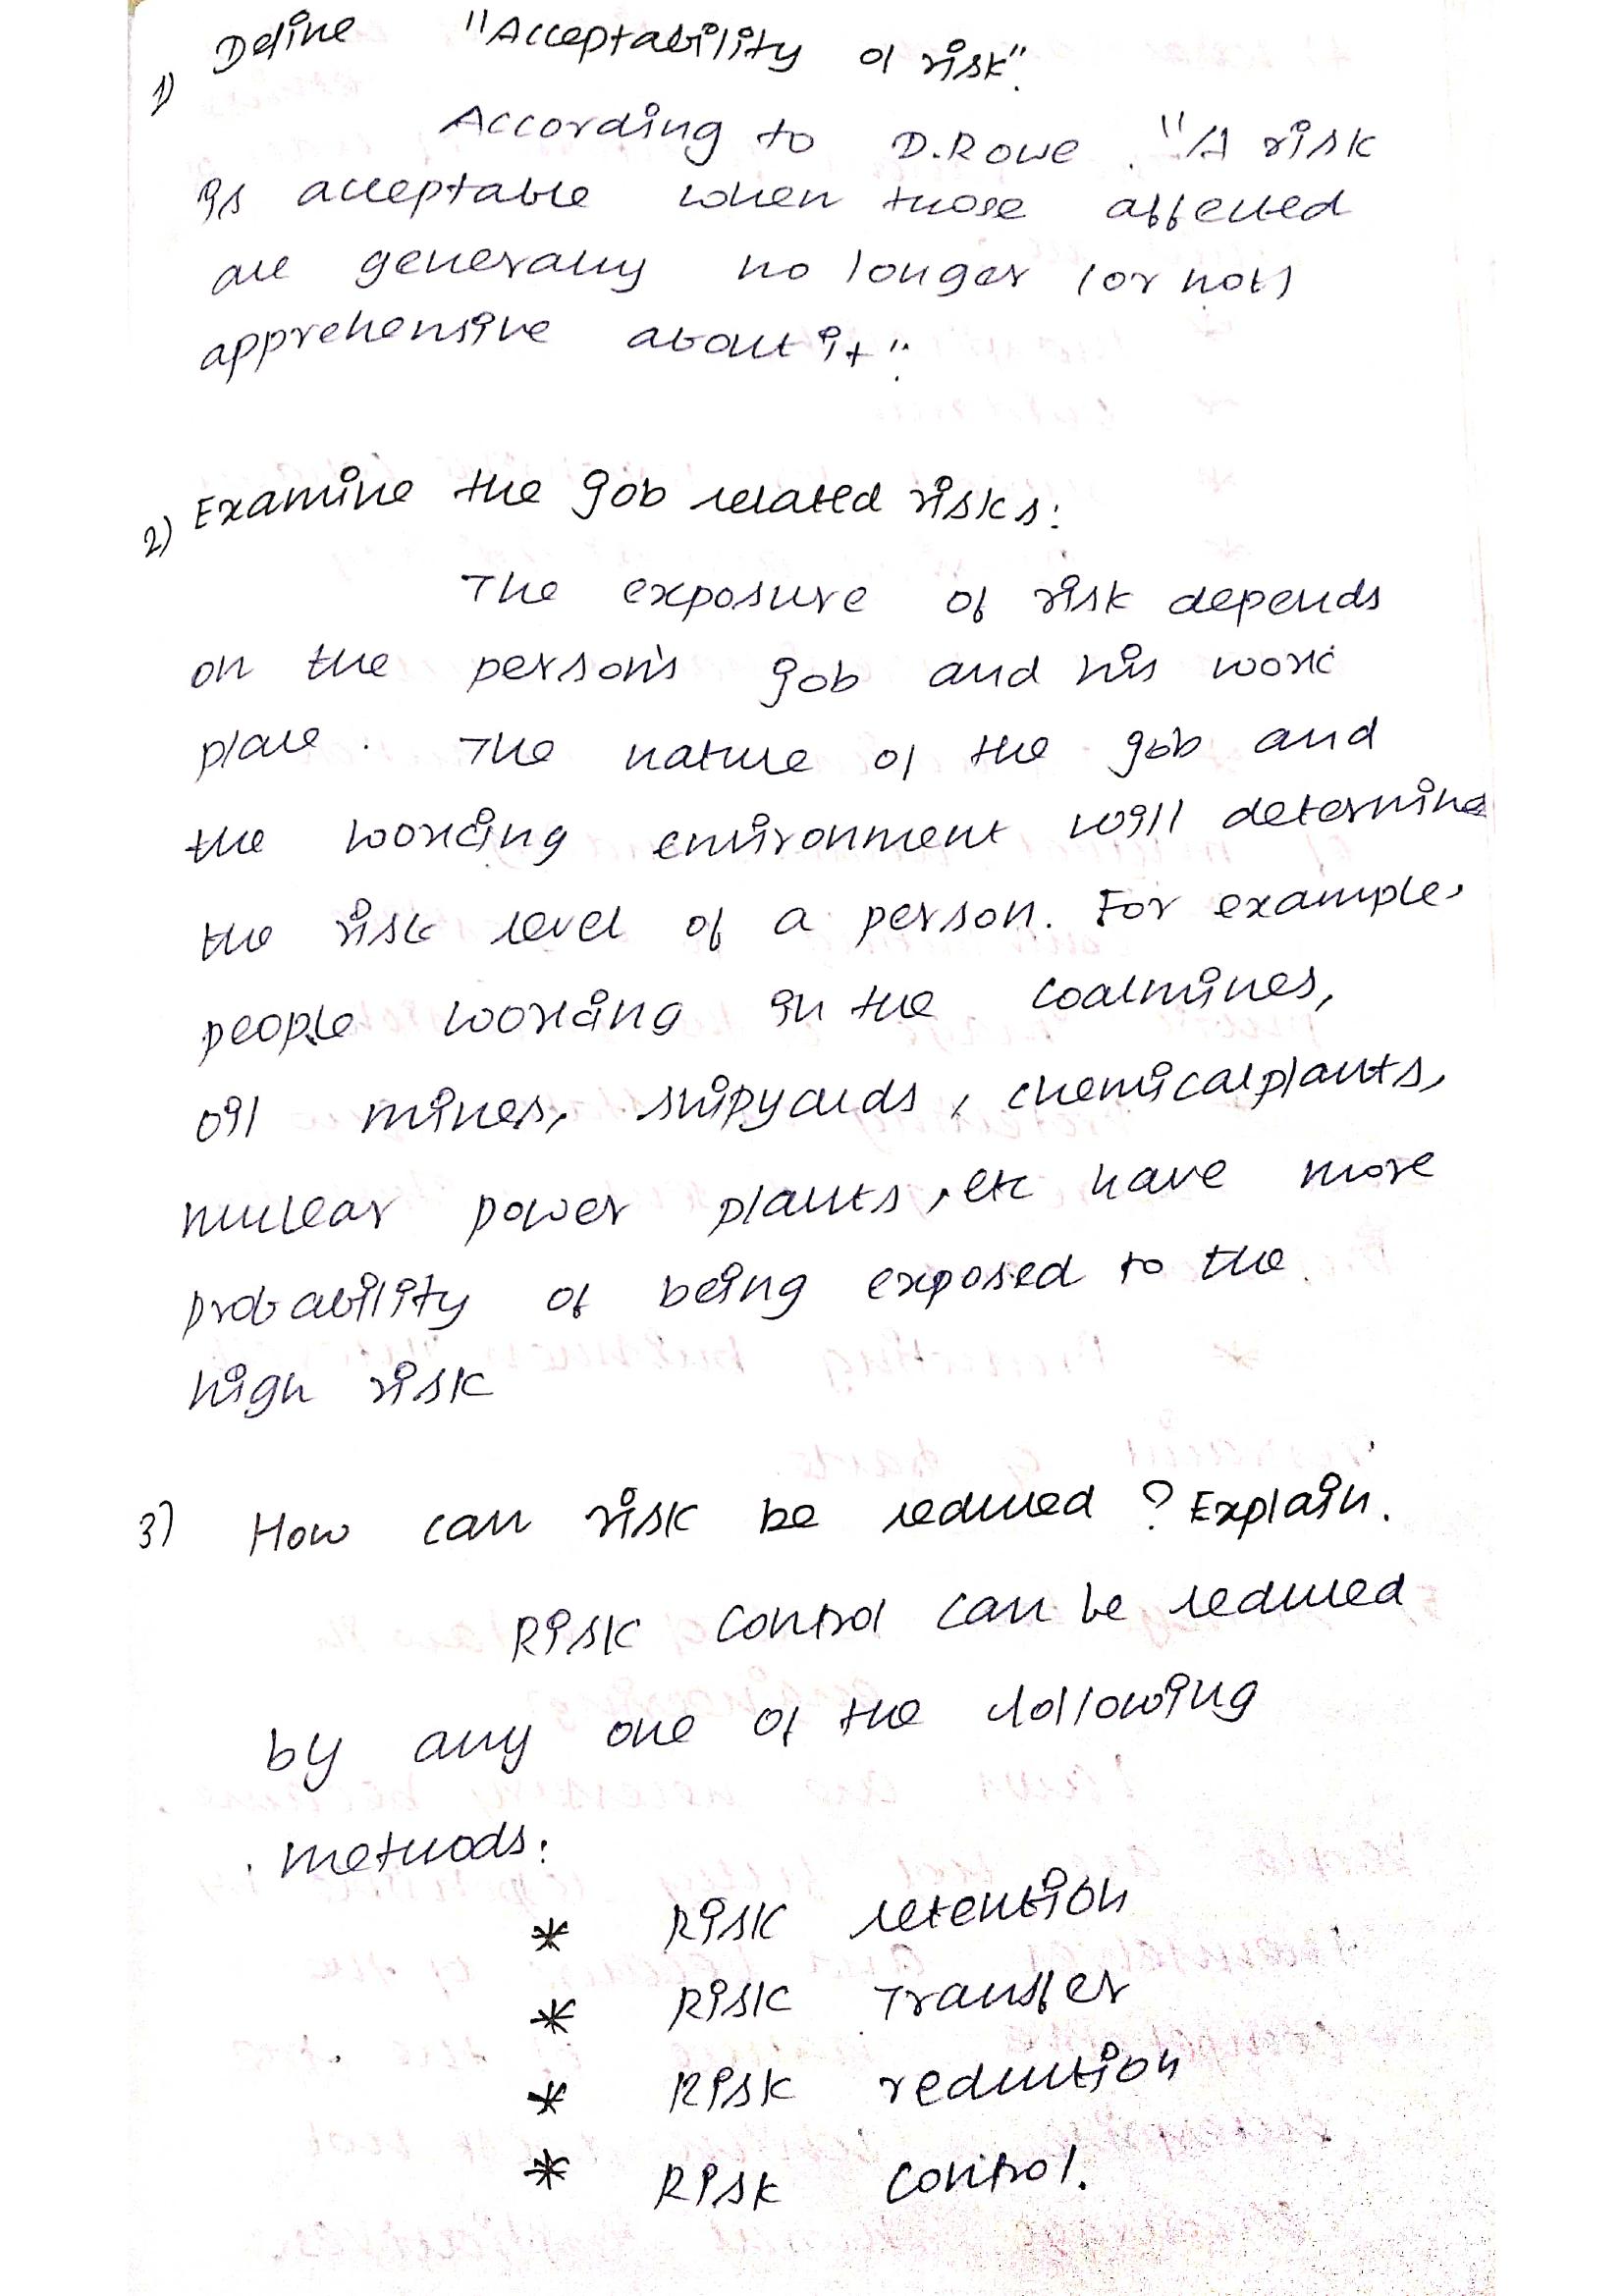 1) Define "Acceptability of risk".
According to D.Rowe. "A risk
is acceptable when those affected
are generally no longer (or not)
apprehensive about it".
2) Examine the job related risks:
The exposure of risk depends
on the person's job and his work
place. The nature of the job and
the working environment will determine
the risk level of a person. For example,
people working in the coalmines,
oil mines, shipyards, chemicalplants,
nuclear power plants, etc have more
probability of being exposed to the
high risk
3) How can risk be reduced? Explain.
Risk Control can be reduced
by any one of the following
methods:
* Risk retention
* Risk Transfer
* Risk reduction
* Risk Control.